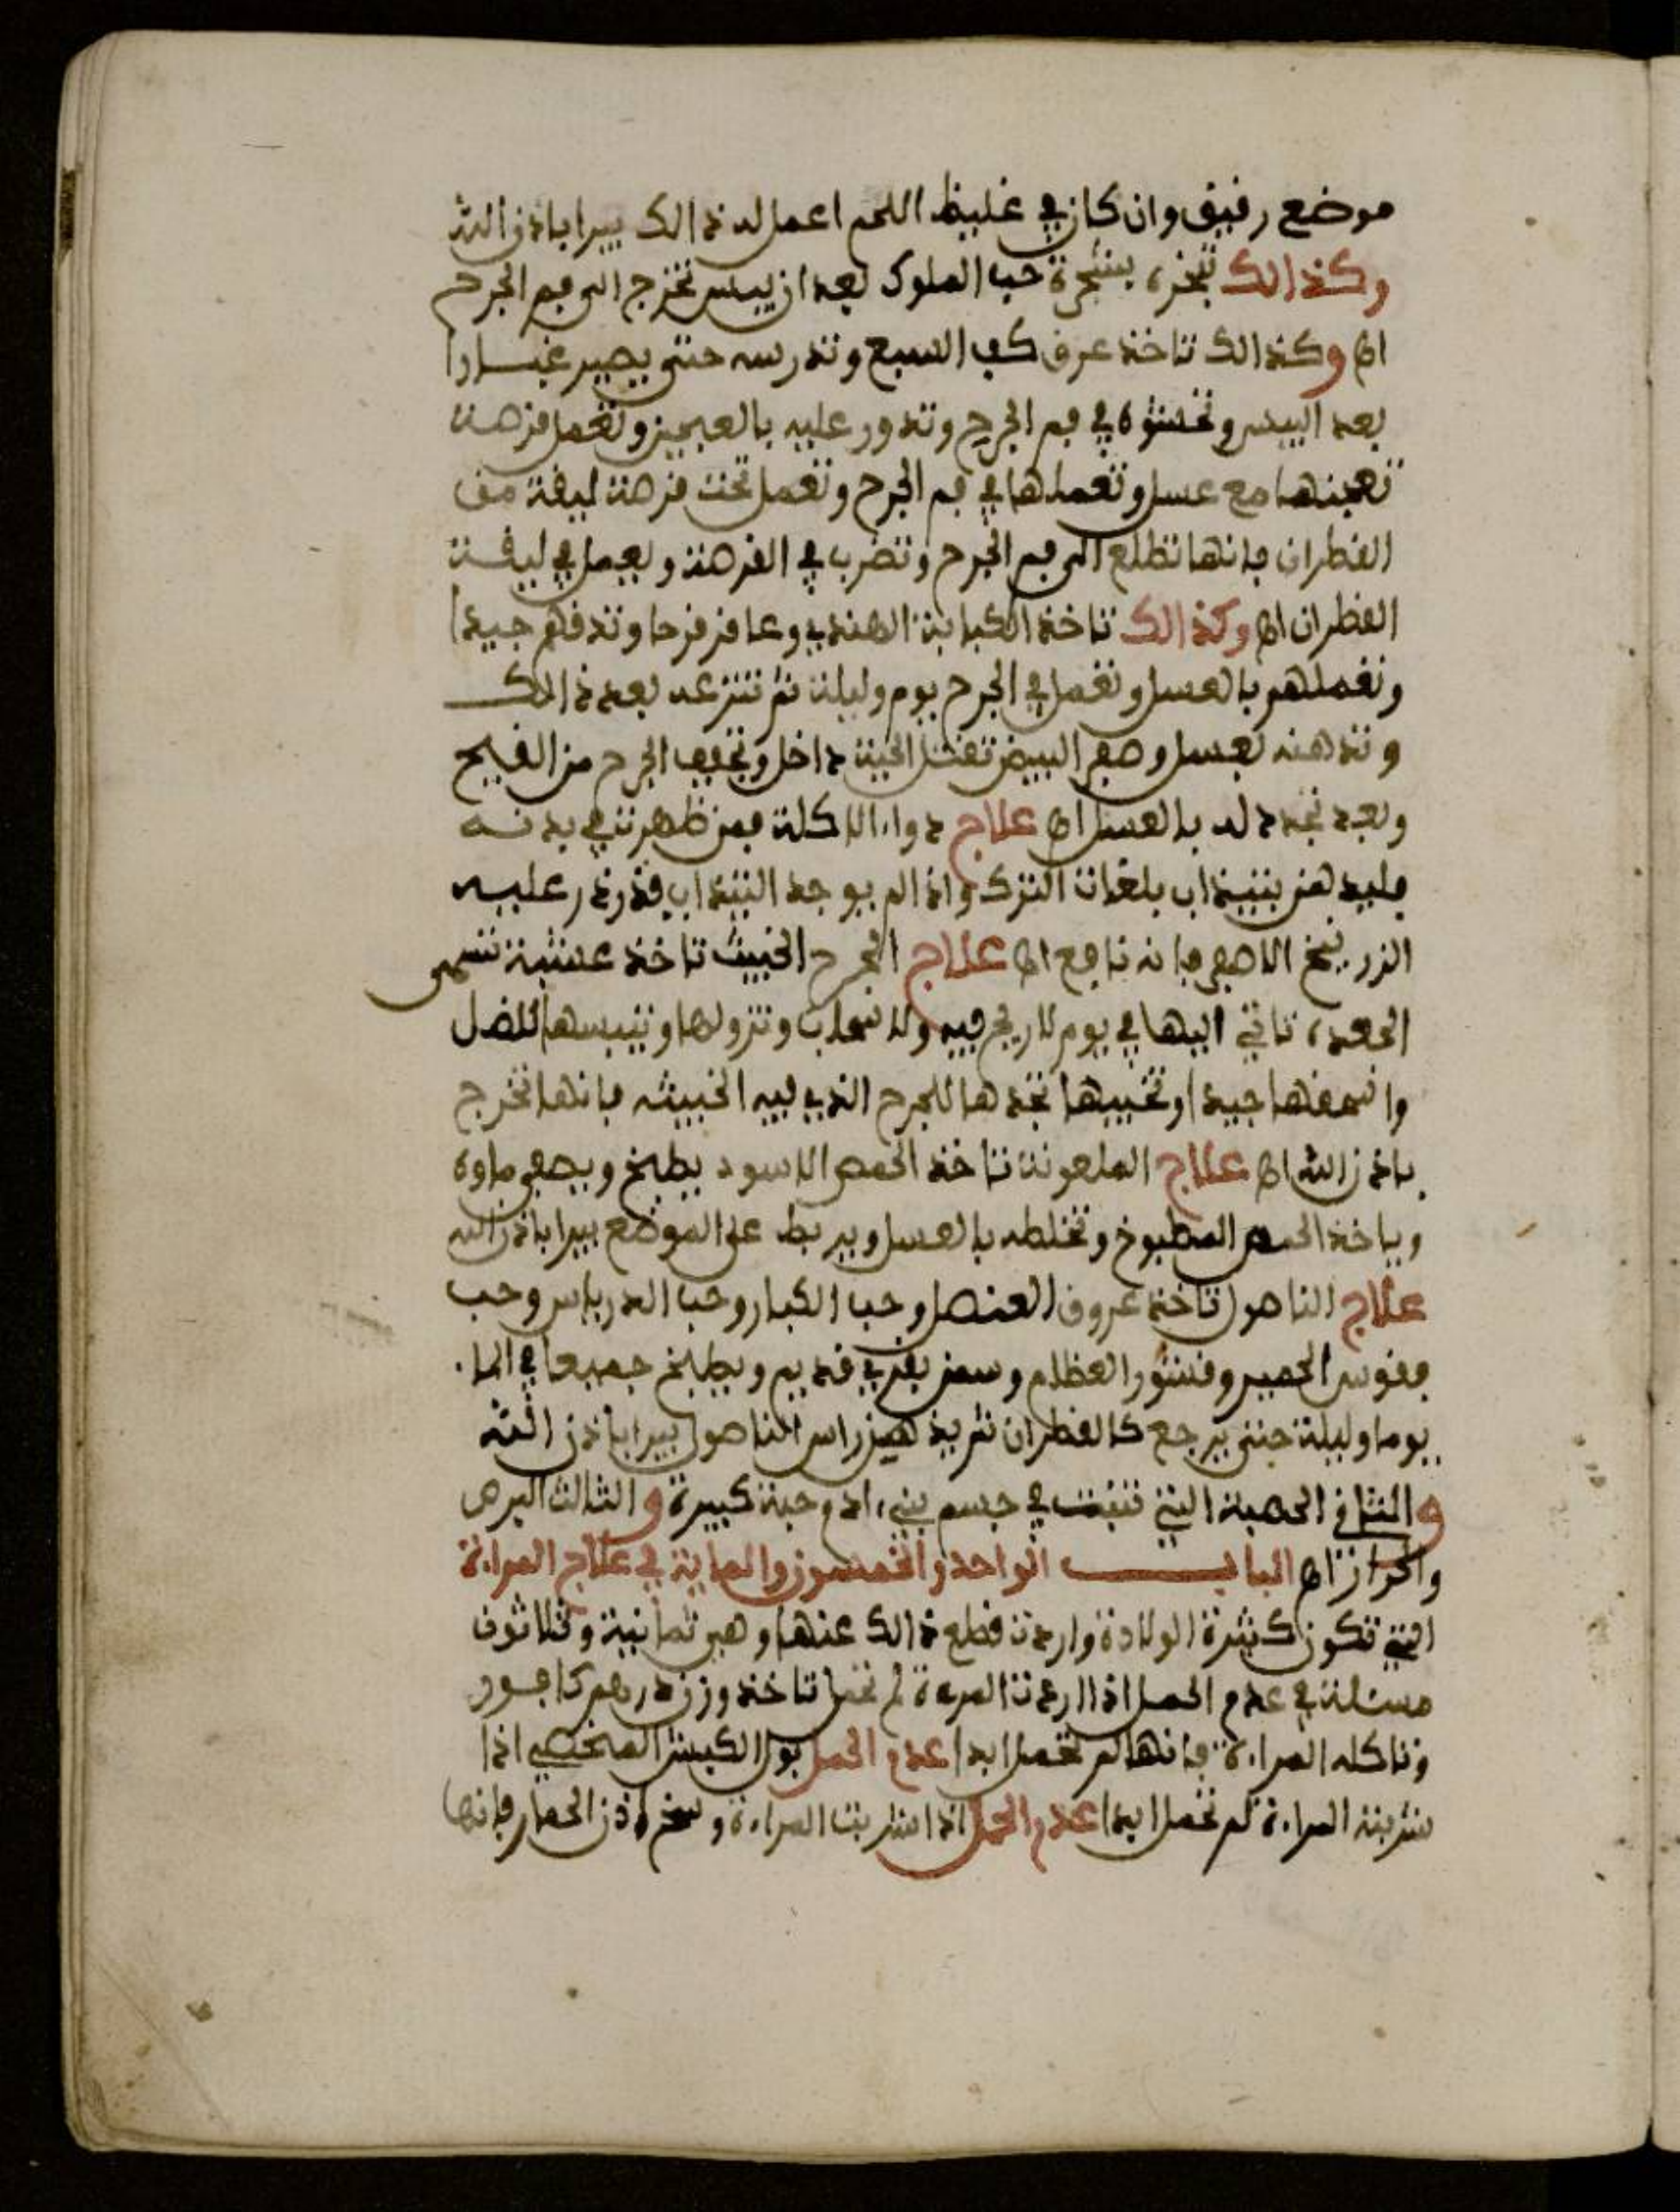 موضع رقيق وان كان في غليظ اللحم اعمل له ذالك يبرا باذن الله
وكذالك تبخره بشجرة حب الملوك بعد ان ييبس تخرج الى فم الجرح
اه وكذالك تاخذ عرق كف السبع وتدرسه حتى يصير غبارا
بعد اليبس وتحشوه في فم الجرح وتدور عليه بالعجين وتعمل قرصة
تعجنها مع عسل وتعملها في فم الجرح وتعمل تحت قرصة ليقة من
القطران فانها تطلع الى فم الجرح وتضرب في القرصة ويعمل في ليقة
القطران اه وكذالك تاخذ الكبابة الهندي وعاقرقرحا وتدقهم جيدا
وتعملهم بالعسل وتعمل في الجرح يوم وليلة ثم تنزعه بعد ذالك
وتدهنه بعسل وصفر البيض تقتل الحية داخل وتجفف الجرح من القيح
وبعد تجدد له بالعسل اه علاج دواء الاكلة فمن ظهرت في بدنه
فليدهن بنبيذ اب بلغات الترك واذا لم يوجد النبيذ اب فذرذر عليه
الزرنيخ الاصفر فانه نافع اه علاج الجرح الخبيث تاخذ عشبة تسمى
الحمده تاتي اليها في يوم لا ريح فيه ولا سحاب وتزولها وتيبسها للضل
واسحقها جيدا وتخبيها تجدها للجرح الذي فيه الخبيثه فانها تخرج
باذن الله اه علاج الملعونة تاخذ الحمص الاسود يطبخ ويصفى ماوه
وياخذ الحمص المطبوخ وتخلطه بالعسل ويربط على الموضع يبرا باذن الله
علاج الناصول تاخذ عروق العنصل وحب الكبار وحب الدرياس وحب
فقوس الحمير وقشور العظام وسمن بقري قديم ويطبخ جميعا في الماء
يوما وليلة حتى يرجع كالقطران ثم يدهن راس الناصول يبرا باذن الله
والثاني الحصبة التي تنبت في جسم بني ادم حبة كبيرة والثالث البرص
والحزاز اه الباب الواحد والخمسون والماية في علاج المراة
التي تكون كثيرة الولادة واردت قطع ذالك عنها وهي ثمانية وثلاثون
مسئلة في عدم الحمل اذا اردت المرءة لم تحمل تاخذ وزن درهم كافور
وتاكله المراءة فانها لم تحمل ابدا عدم الحمل بول الكبش المخصي اذا
شربته المراءة لم تحمل ابدا عدم الحمل اذا شربت المراءة وسخ اذن الحمار فانها